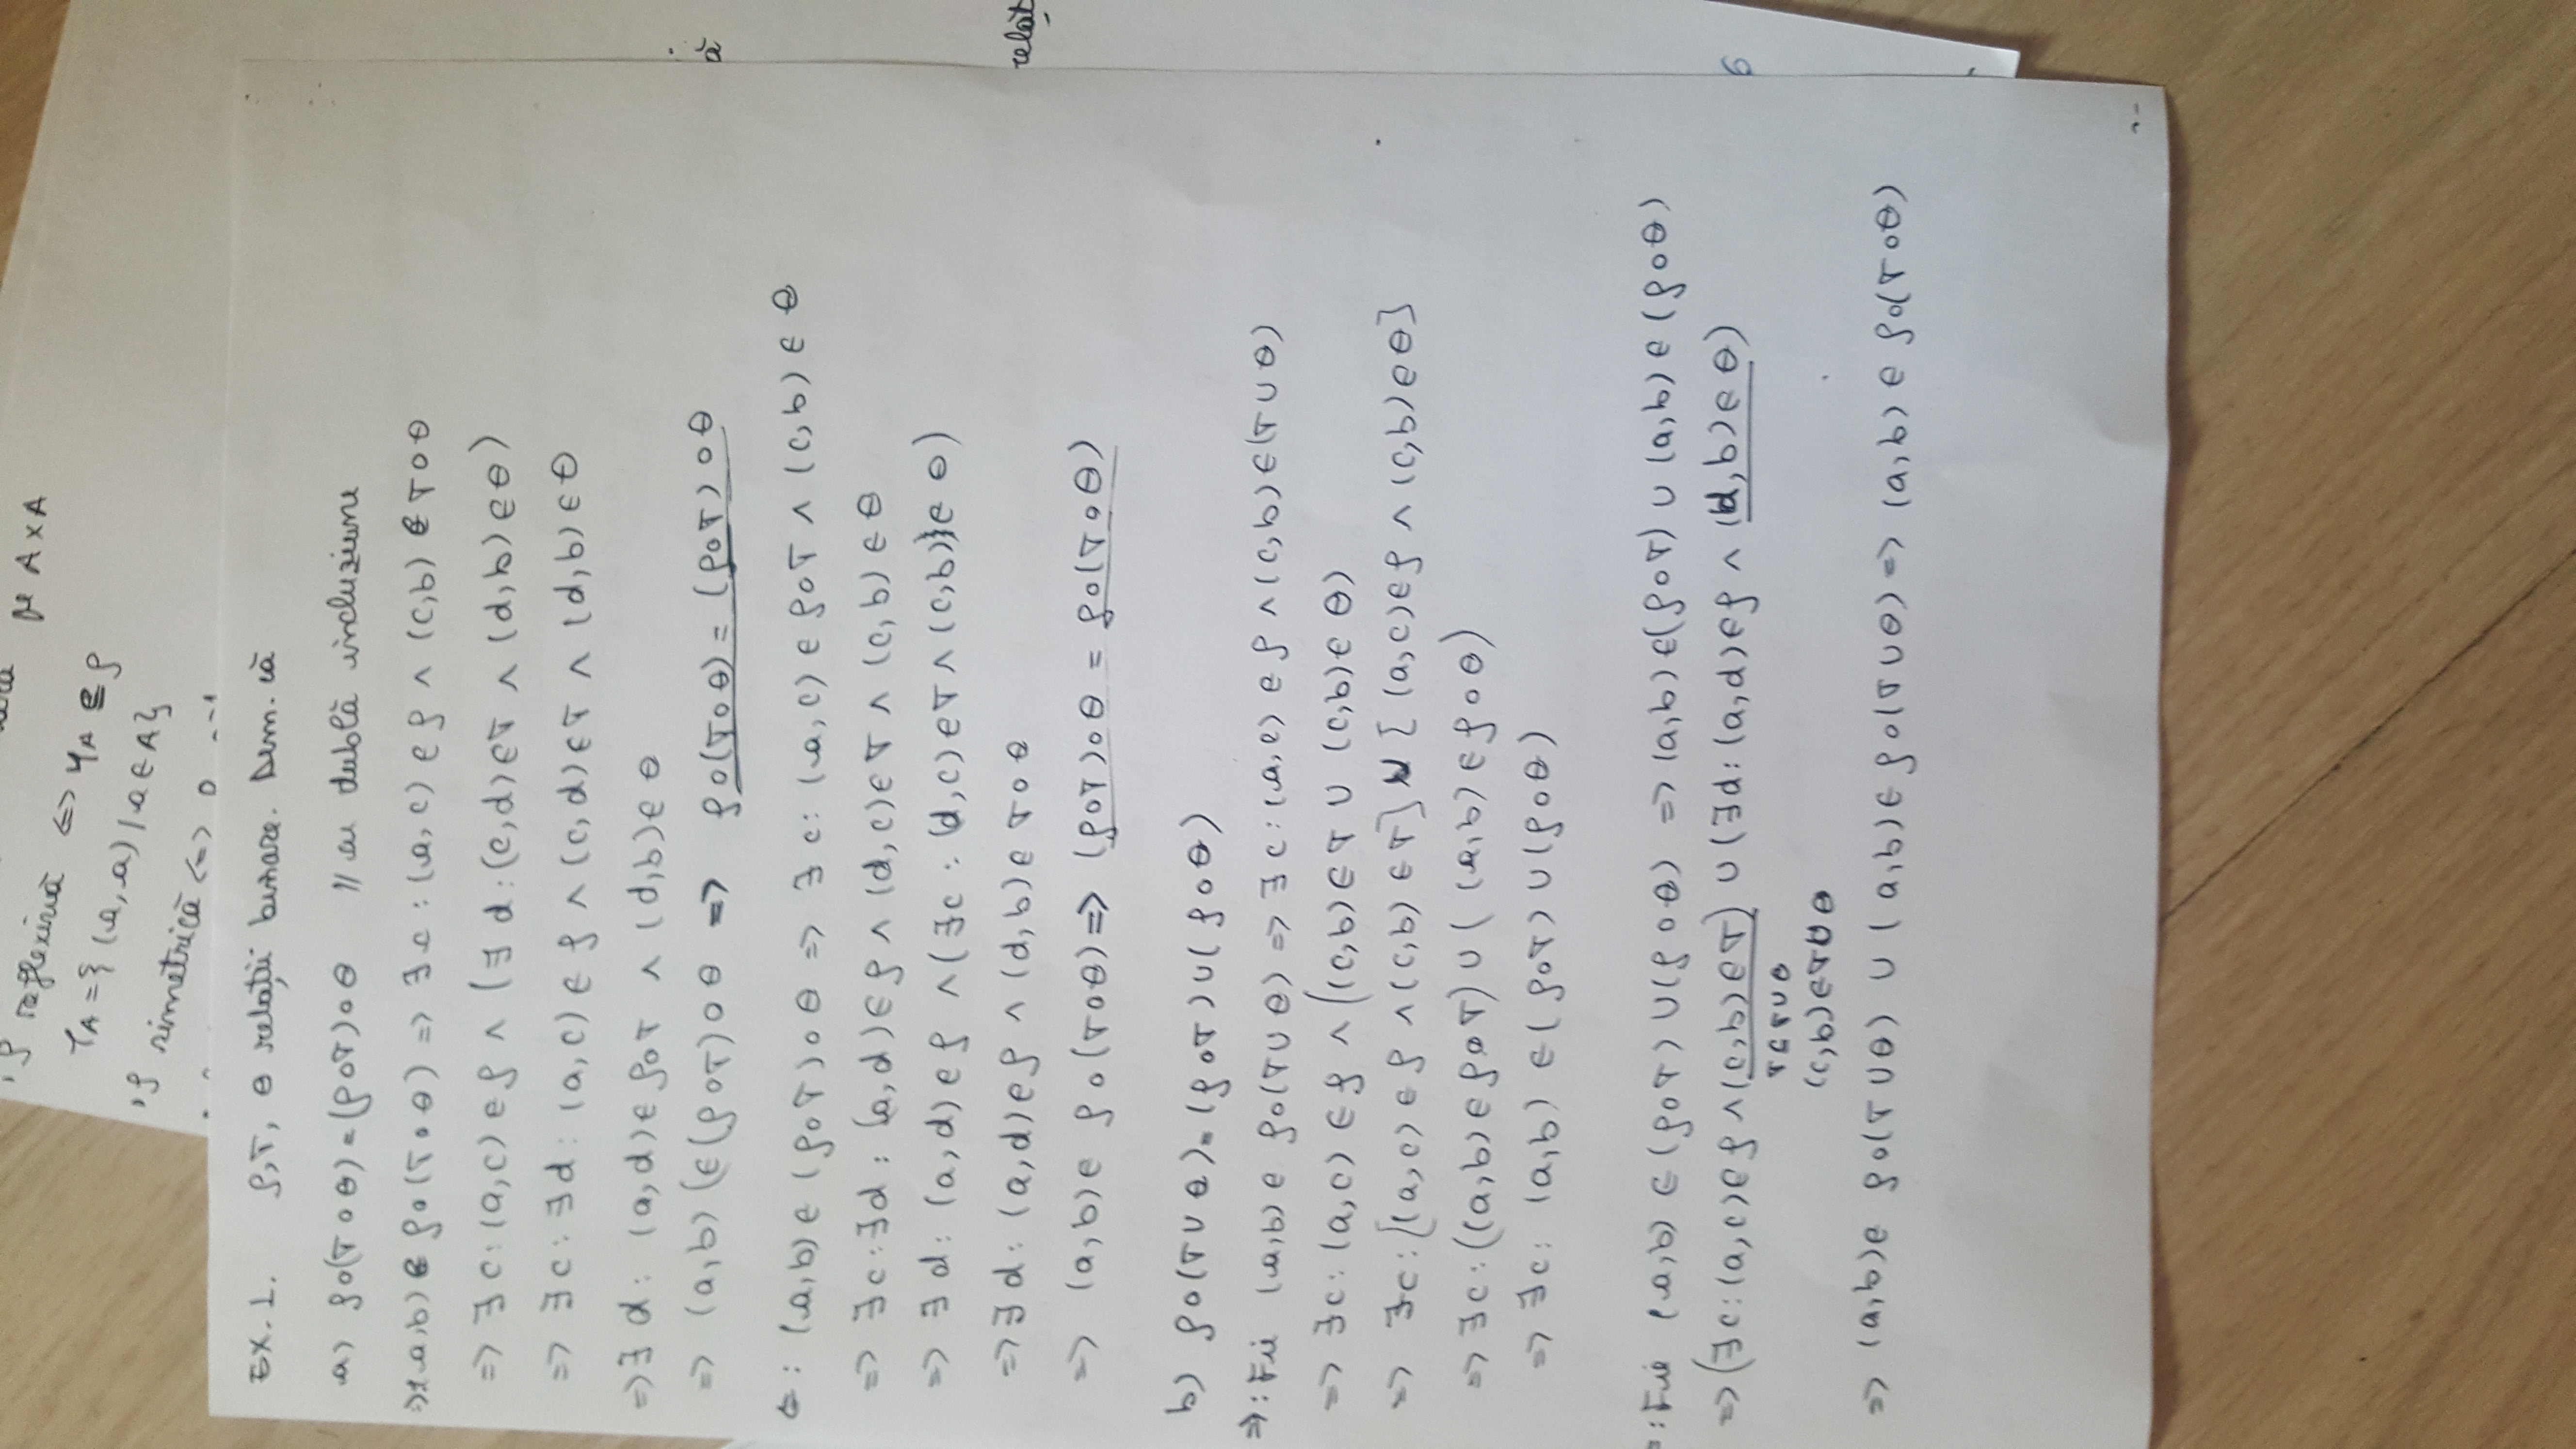 pe A×A
ρ reflexivă <=> 1A ⊆ ρ
1A = {(a,a) | a∈A}
ρ simetrică <=>
EX. 1. ρ, τ, θ relații binare. Dem. că
a) ρ∘(τ∘θ) = (ρ∘τ)∘θ // cu dublă incluziune
=>: (a,b) ∈ ρ∘(τ∘θ) => ∃ c : (a,c) ∈ ρ ∧ (c,b) ∈ τ∘θ
=> ∃ c : (a,c) ∈ ρ ∧ (∃ d : (c,d) ∈ τ ∧ (d,b) ∈ θ)
=> ∃ c : ∃ d : (a,c) ∈ ρ ∧ (c,d) ∈ τ ∧ (d,b) ∈ θ
=> ∃ d : (a,d) ∈ ρ∘τ ∧ (d,b) ∈ θ
=> (a,b) (∈ (ρ∘τ)∘θ => ρ∘(τ∘θ) = (ρ∘τ)∘θ
ă
<=: (a,b) ∈ (ρ∘τ)∘θ => ∃ c : (a,c) ∈ ρ∘τ ∧ (c,b) ∈ θ
=> ∃ c : ∃ d : (a,d) ∈ ρ ∧ (d,c) ∈ τ ∧ (c,b) ∈ θ
=> ∃ d : (a,d) ∈ ρ ∧ (∃ c : (d,c) ∈ τ ∧ (c,b) ∈ θ)
=> ∃ d : (a,d) ∈ ρ ∧ (d,b) ∈ τ∘θ
relaț
=> (a,b) ∈ ρ∘(τ∘θ) => (ρ∘τ)∘θ = ρ∘(τ∘θ)
b) ρ∘(τ∪θ) = (ρ∘τ)∪(ρ∘θ)
=>: Fie (a,b) ∈ ρ∘(τ∪θ) => ∃ c : (a,c) ∈ ρ ∧ (c,b) ∈ (τ∪θ)
=> ∃ c : (a,c) ∈ ρ ∧ ((c,b) ∈ τ ∪ (c,b) ∈ θ)
=> ∃ c : [(a,c) ∈ ρ ∧ (c,b) ∈ τ] ∪ [(a,c) ∈ ρ ∧ (c,b) ∈ θ]
=> ∃ c : ((a,b) ∈ ρ∘τ) ∪ ((a,b) ∈ ρ∘θ)
=> ∃ c : (a,b) ∈ (ρ∘τ) ∪ (ρ∘θ)
: Fie (a,b) ∈ (ρ∘τ) ∪ (ρ∘θ) => (a,b) ∈ (ρ∘τ) ∪ (a,b) ∈ (ρ∘θ)
=> (∃ c : (a,c) ∈ ρ ∧ (c,b) ∈ τ) ∪ (∃ d : (a,d) ∈ ρ ∧ (d,b) ∈ θ)
6
τ ⊆ τ∪θ
(c,b) ∈ τ∪θ
=> (a,b) ∈ ρ∘(τ∪θ) ∪ (a,b) ∈ ρ∘(τ∪θ) => (a,b) ∈ ρ∘(τ∘θ)